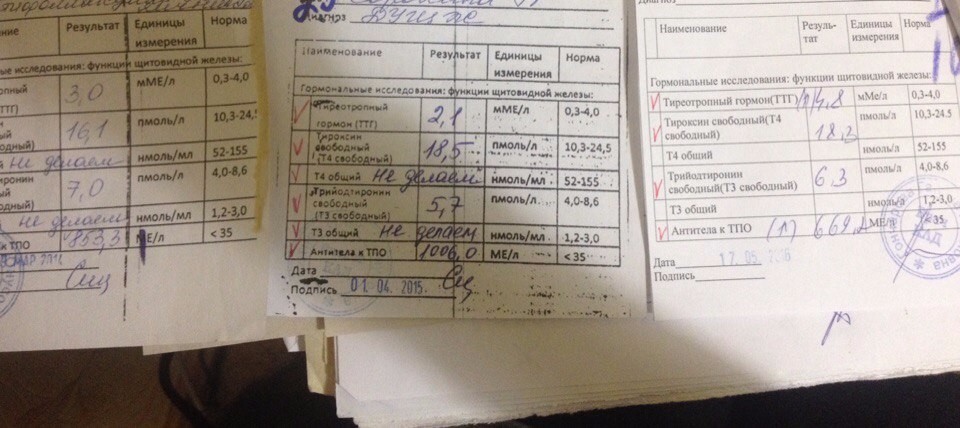 Результат
Единицы
измерения
Норма
ные исследования: функции щитовидной железы:
3,0
мМЕ/л
0,3-4,0
16,1
пмоль/л
10,3-24,5
не делаем
нмоль/мл
52-155
7,0
пмоль/л
4,0-8,6
не делаем
нмоль/мл
1,2-3,0
к ТПО
853,3
МЕ/л
< 35
Диагноз
Наименование
Результат
Единицы
измерения
Норма
Гормональные исследования: функции щитовидной железы:
Тиреотропный
гормон (ТТГ)
2,1
мМЕ/л
0,3-4,0
Тироксин
свободный
(Т4 свободный)
18,5
пмоль/л
10,3-24,5
Т4 общий
не делаем
нмоль/мл
52-155
Трийодтиронин
свободный
(Т3 свободный)
5,7
пмоль/л
4,0-8,6
Т3 общий
не делаем
нмоль/мл
1,2-3,0
Антитела к ТПО
1006,0
МЕ/л
< 35
Дата
Подпись
01.04.2015.
Наименование
Резуль-
тат
Единицы
измерения
Норма
Гормональные исследования: функции щитовидной железы:
Тиреотропный гормон(ТТГ)
4,8
мМе/л
0,3-4,0
Тироксин свободный(Т4
свободный)
18,3
пмоль/л
10,3-24.5
Т4 общий
нмоль/л
52-155
Трийодтиронин
свободный(Т3 свободный)
6,3
пмоль/л
4,0-8,6
Т3 общий
нмоль/л
1,2-3,0
Антитела к ТПО
МЕ/л
< 35
Дата
Подпись